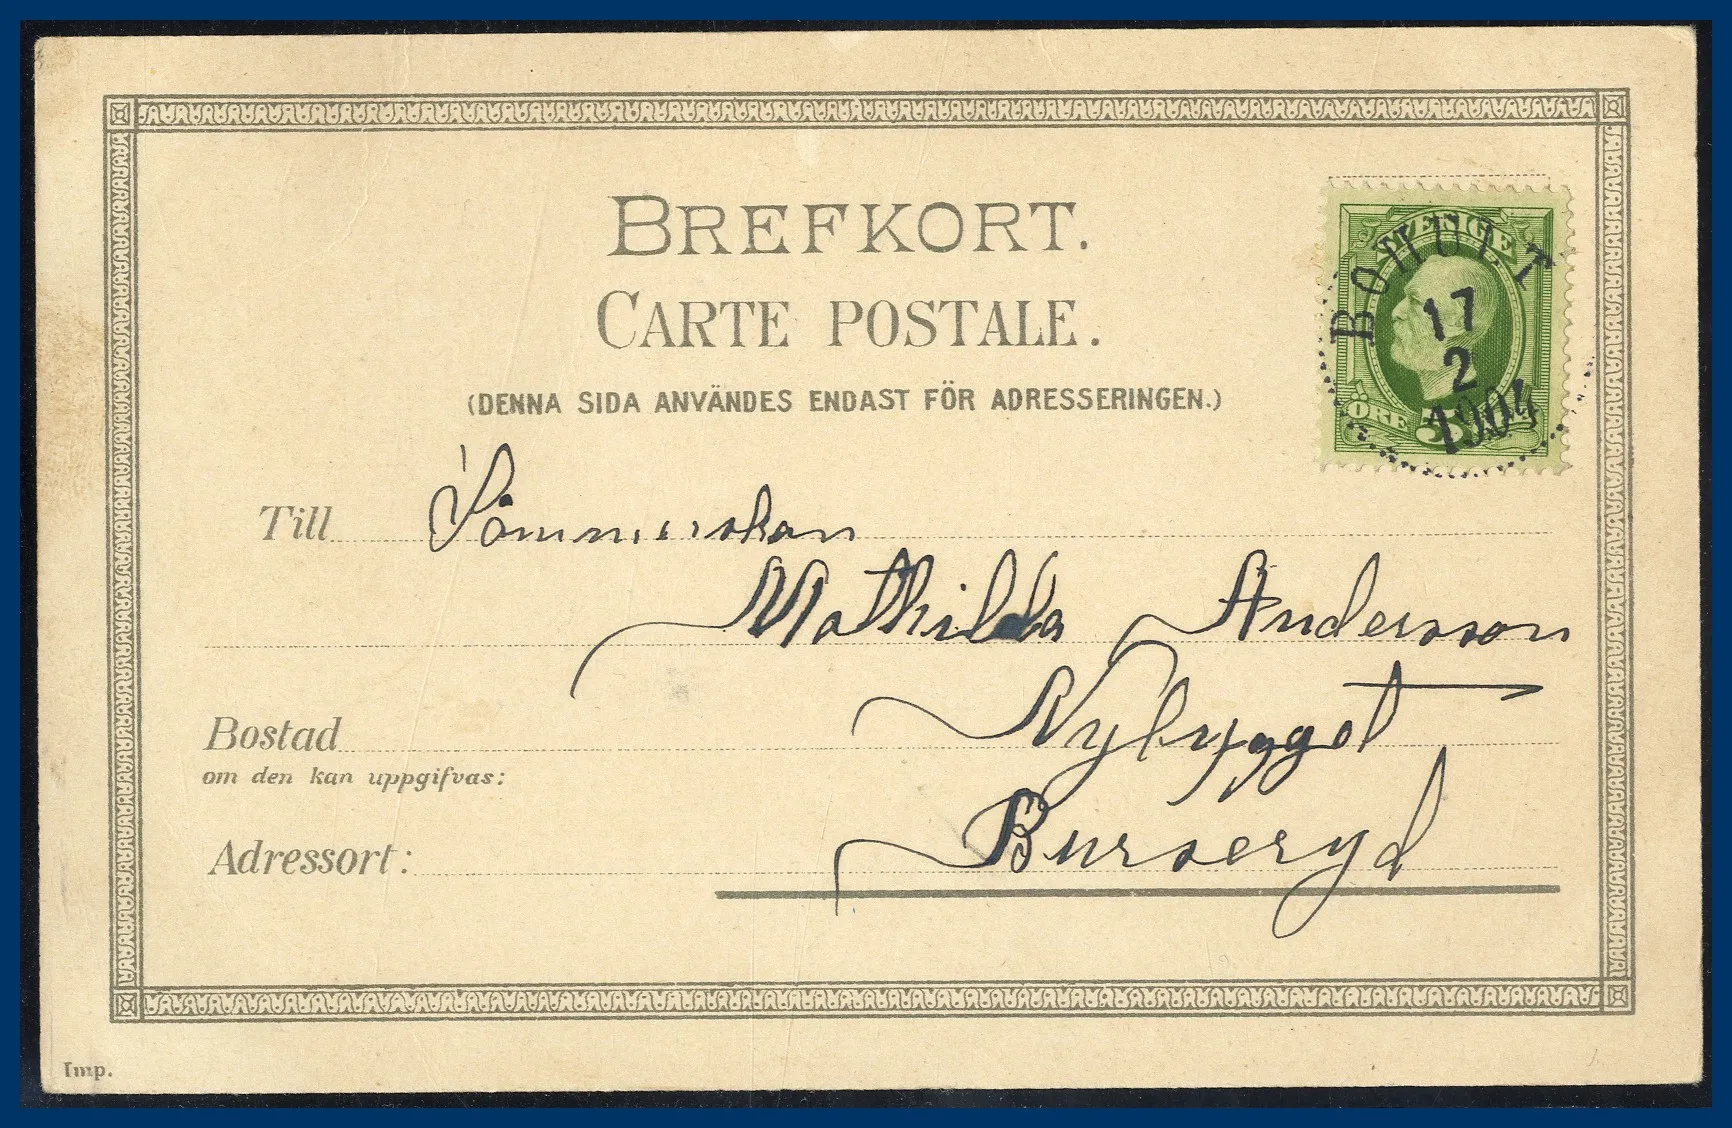 BREFKORT.
CARTE POSTALE.
(DENNA SIDA ANVÄNDES ENDAST FÖR ADRESSERINGEN.)
SVERIGE
ÖRE 5
BOHULT
17
2
1904
Till Sömmerskan
Mathilda Andersson
Bostad Nybygget
om den kan uppgifvas:
Adressort: Burseryd
Imp.